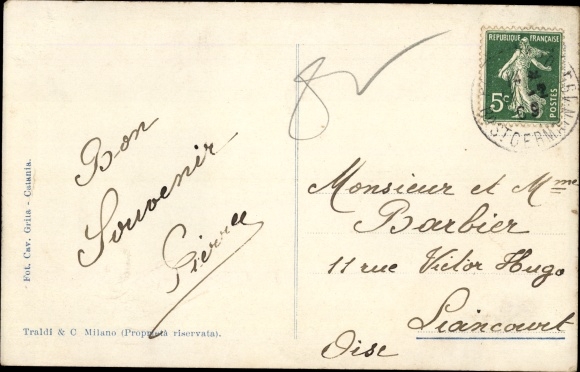 Fot. Cav. Grita - Catania.
Bon
Souvenir
Pierre
Traldi & C. Milano (Proprietà riservata).
REPUBLIQUE FRANÇAISE
5c
POSTES
Monsieur et Mme
Barbier
11 rue Victor Hugo
Liancourt
Oise